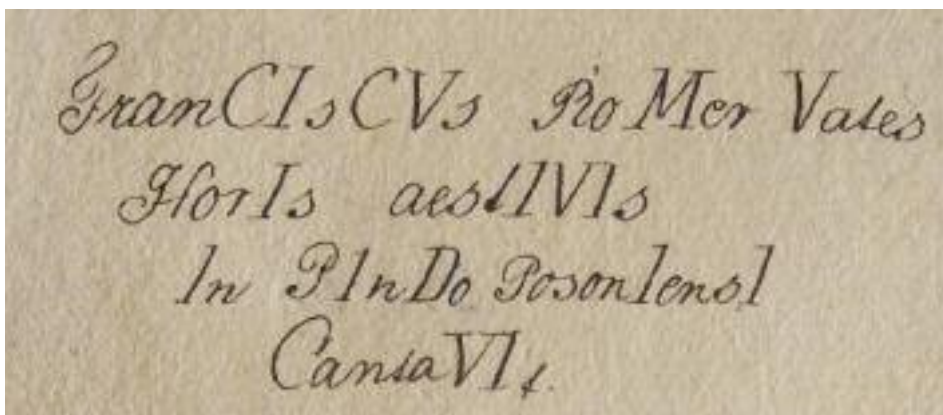 FranCIsCVs RoMer Vates
HorIs aestIVIs
In PInDo PosonIensI
CantaVIt.